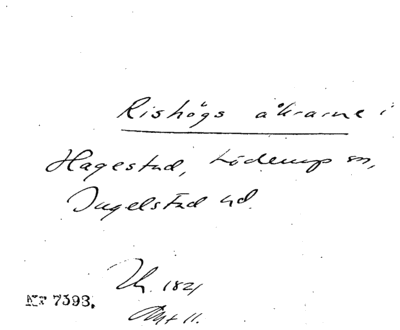 Rishögs åkrarne i
Hagestad, Löderup sn,
Ingelstad hd.
Nr 7393.
1821
Akt 11.